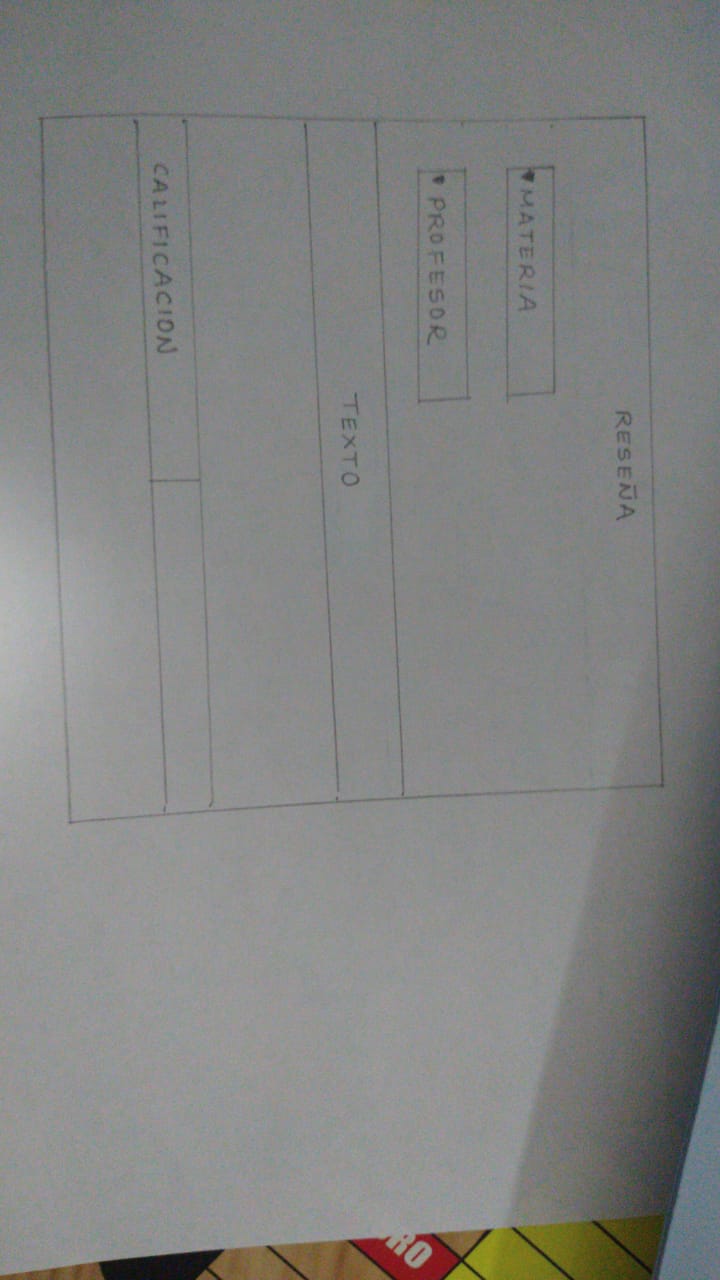 RESEÑA
▼ MATERIA
▼ PROFESOR
TEXTO
CALIFICACION
RO